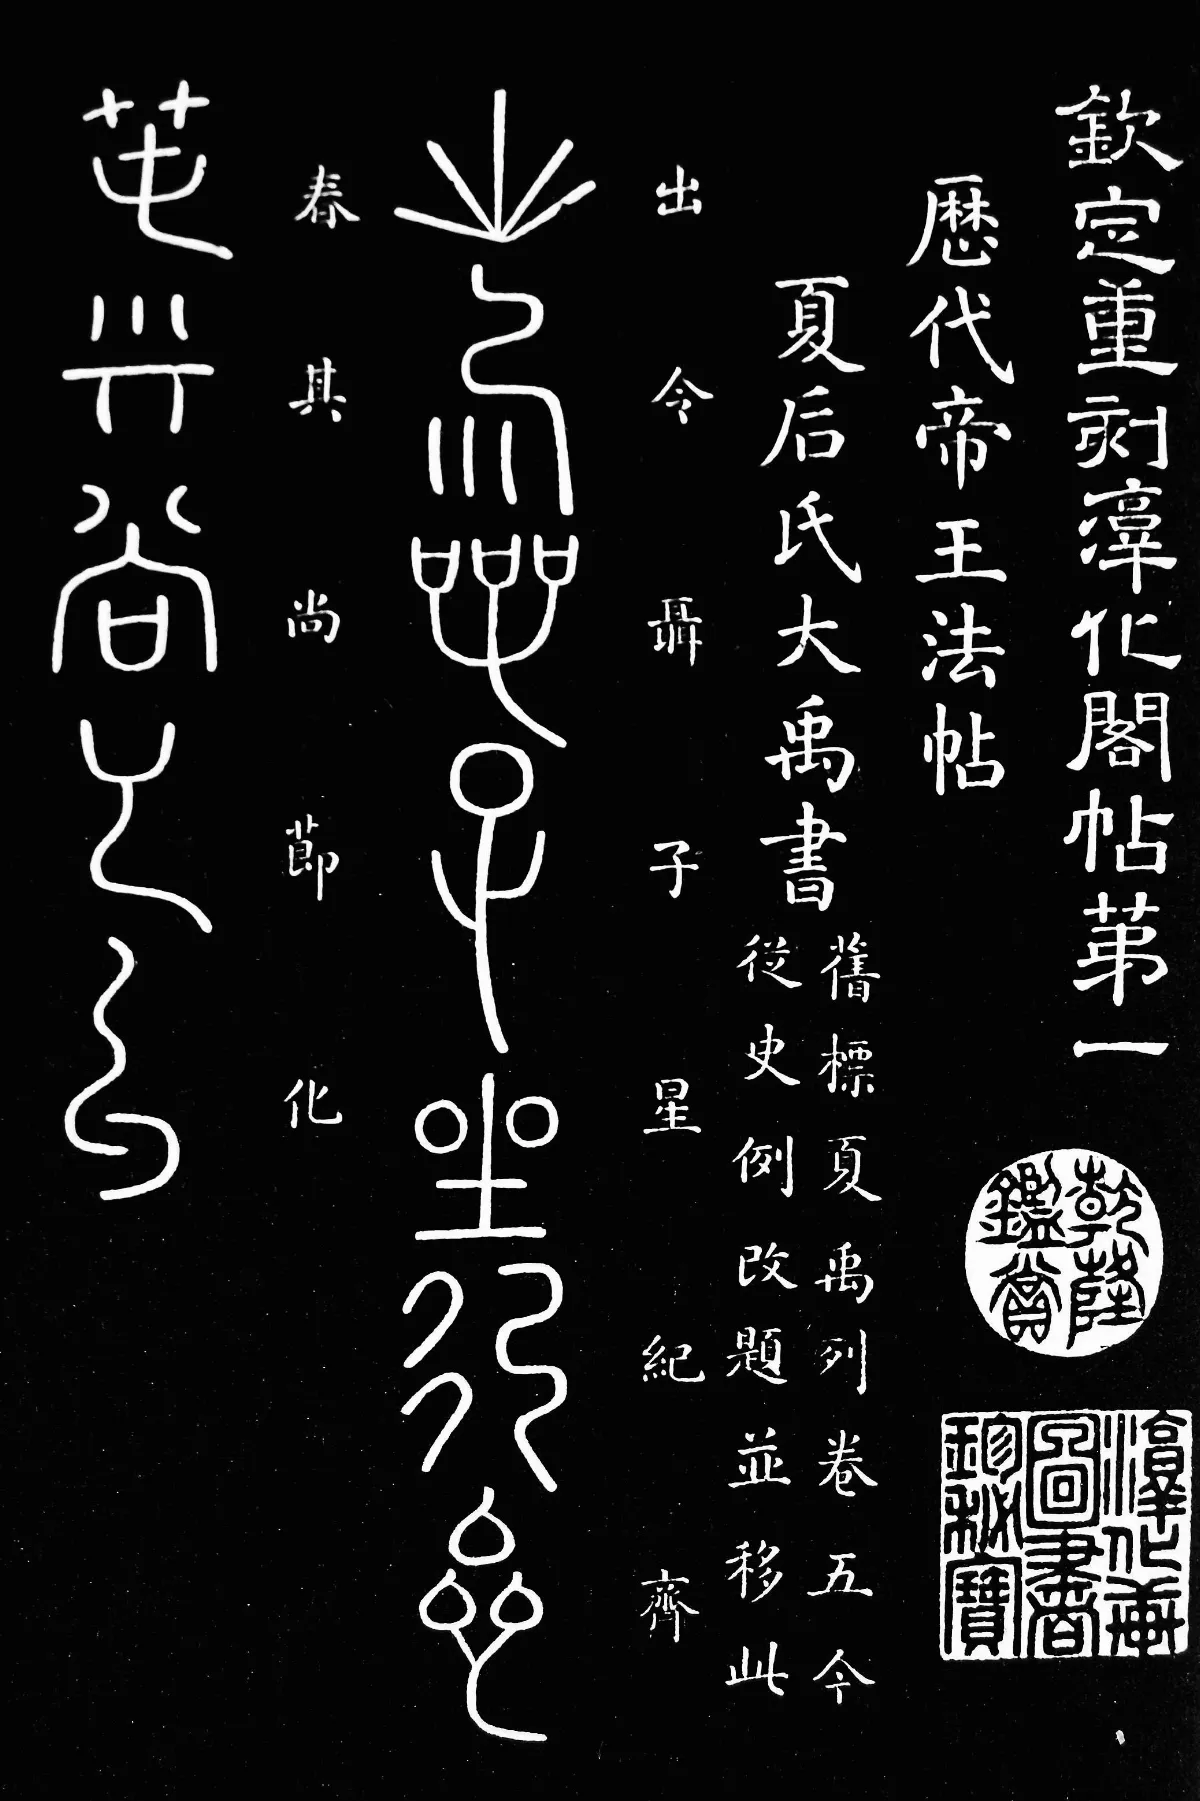 欽定重刻淳化閣帖第一
乾隆鑑賞
淳化軒
圖書
珍秘寶
歷代帝王法帖
夏后氏大禹書
舊標夏禹列卷五今
從史例改題並移此
出令聶子星紀齊
春其尚節化